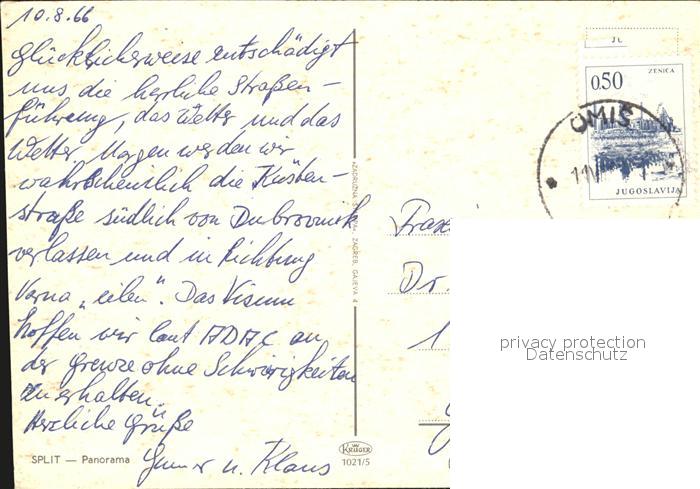 10.8.66
Glücklicherweise entschädigt
uns die herrliche Straßen-
führung, das Wetter und das
Wetter Morgen werden wir
wahrscheinlich die Küsten-
straße südlich von Dubrovnik
verlassen und in Richtung
Varna „eilen". Das Visum
hoffen wir laut ADAC an
der Grenze ohne Schwierigkeiten
zu erhalten.
Herzliche Grüße
u. Klaus
SPLIT — Panorama
ZAGREB, GAJEVA 4
KRÜGER
1021/5
0.50
ZENICA
JUGOSLAVIJA
OMIŠ
Dr.
1
privacy protection
Datenschutz